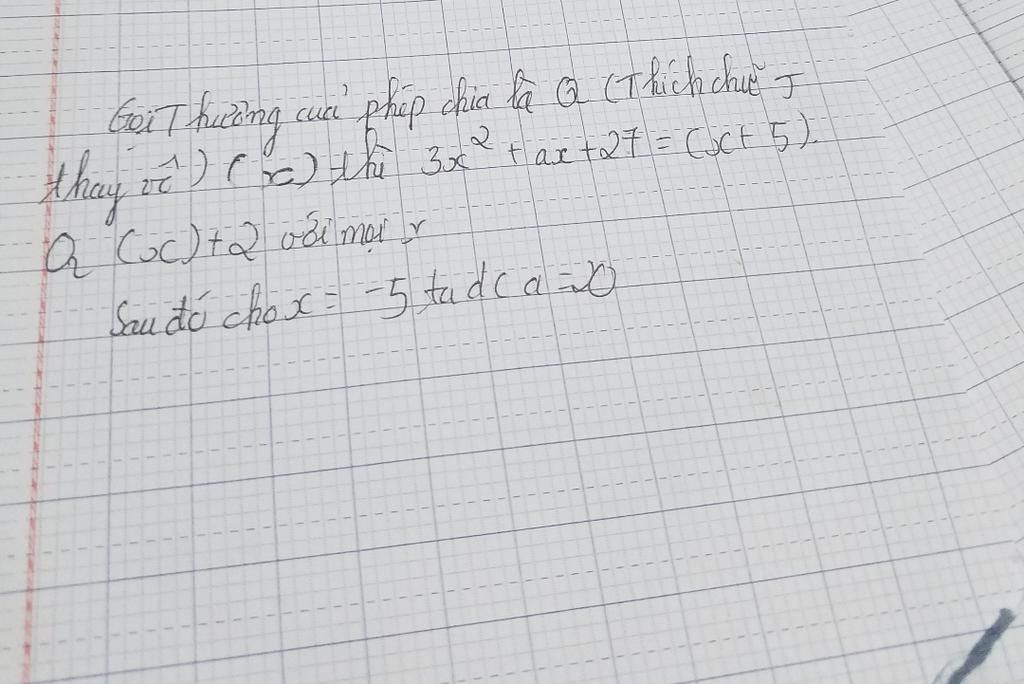 Gọi Thương của phép chia là Q (Thích chữ J
thay vế) (x) thì 3x² + ax + 27 = (x + 5).
Q (x) + 2 với mọi x
Sau đó cho x = -5 ta dc a = 20